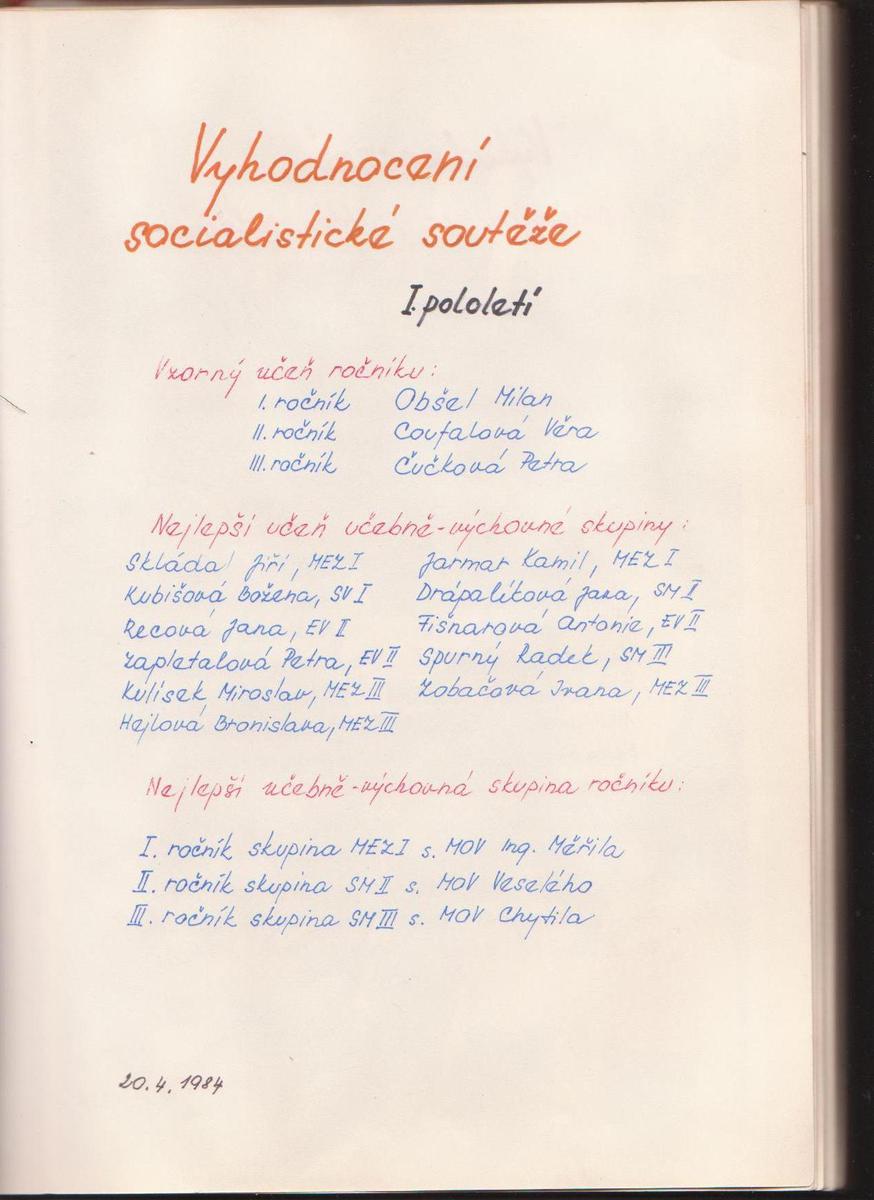 Vyhodnocení
socialistické soutěže
I. pololetí
Vzorný učeň ročníku:
I. ročník Obšel Milan
II. ročník Coufalová Věra
III. ročník Čučková Petra
Nejlepší učeň učebně-výchovné skupiny:
Skládal Jiří, MEZ I Jarmar Kamil, MEZ I
Kubišová Božena, SV I Drápalíková Jana, SM II
Recová Jana, EV II Fišnarová Antonie, EV II
Zapletalová Petra, EV II Spurný Radek, SM III
Kulísek Miroslav, MEZ III Zobačová Ivana, MEZ III
Hejlová Bronislava, MEZ III
Nejlepší učebně-výchovná skupina ročníku:
I. ročník skupina MEZ I s. MOV Ing. Měřila
II. ročník skupina SM II s. MOV Veselého
III. ročník skupina SM III s. MOV Chytila
20.4.1984